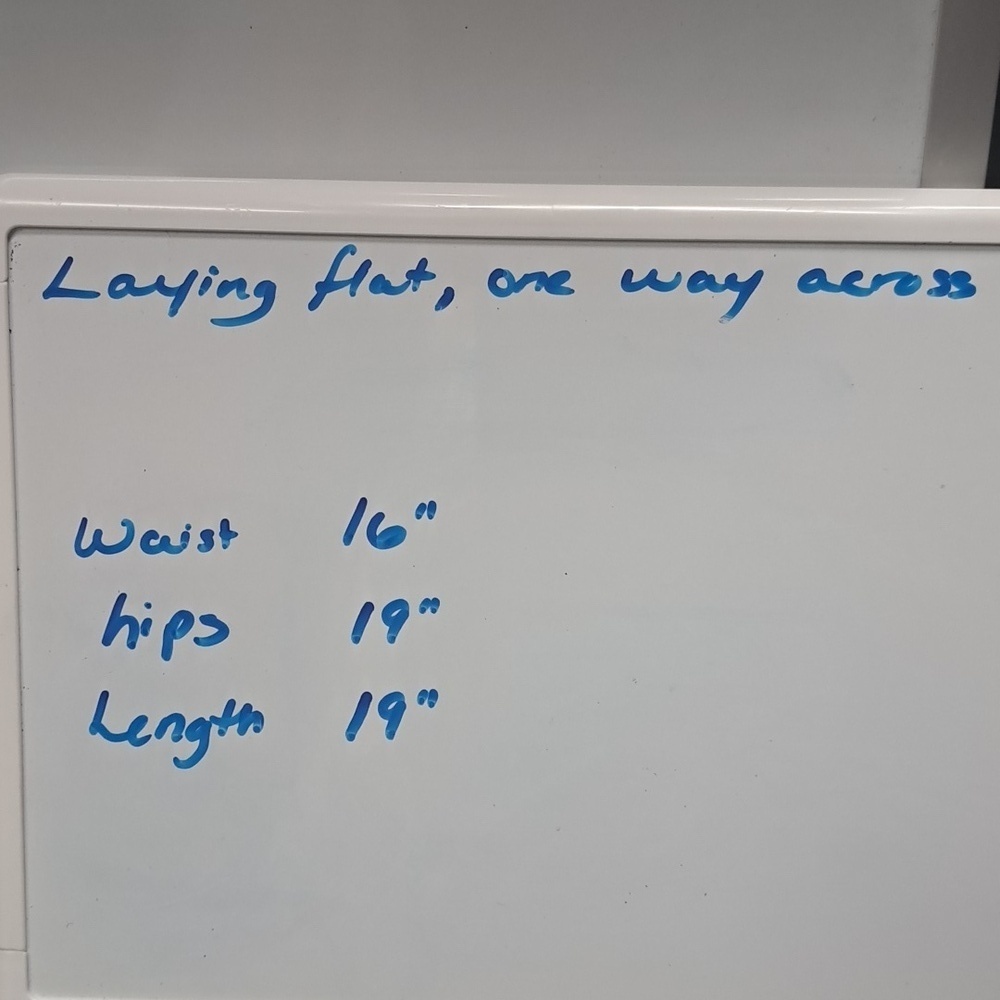 Laying flat, one way across
Waist 16"
hips 19"
Length 19"